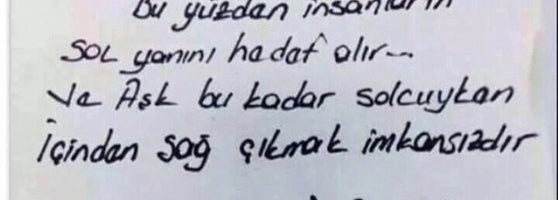 Bu yüzden insanların
SOL yanını hedef alır...
Ve Aşk bu kadar solcuyken
İçinden sağ çıkmak imkansızdır